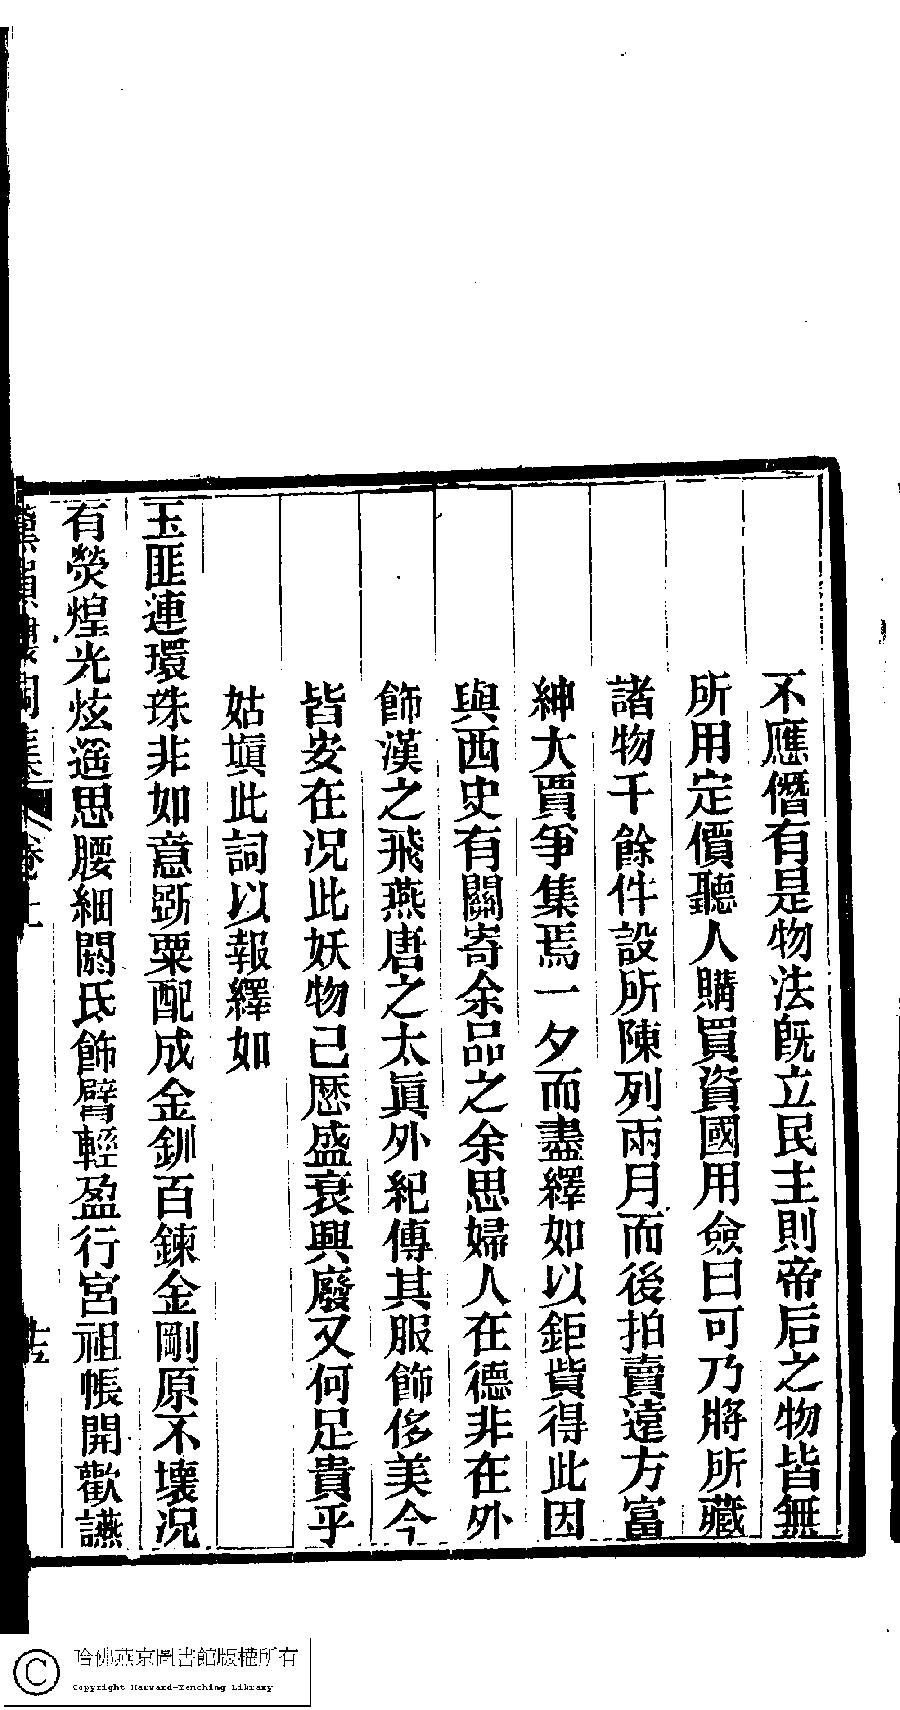 不應僭有是物法旣立民主則帝后之物皆無
所用定價聽人購買資國用僉曰可乃將所藏
諸物千餘件設所陳列兩月而後拍賣遠方富
紳大賈爭集焉一夕而盡繹如以鉅貲得此因
與西史有關寄余品之余思婦人在德非在外
飾漢之飛燕唐之太眞外紀傳其服飾侈美今
皆安在况此妖物已歷盛衰興廢又何足貴乎
姑塡此詞以報繹如
玉匪連環珠非如意斲粟配成金釧百鍊金剛原不壞况
有熒煌光炫遥思腰細閼氏飾臂輕盈行宮祖帳開歡讌
詞集 卷上
哈佛燕京圖書館版權所有
Copyright Harvard-Yenching Library